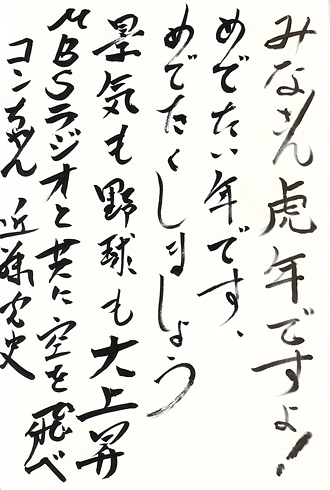 みなさん虎年ですよ!
めでたい年です、
めでたくしましょう
景気も野球も大上昇
MBSラジオと共に空を飛べ
コンちゃん 近藤光史